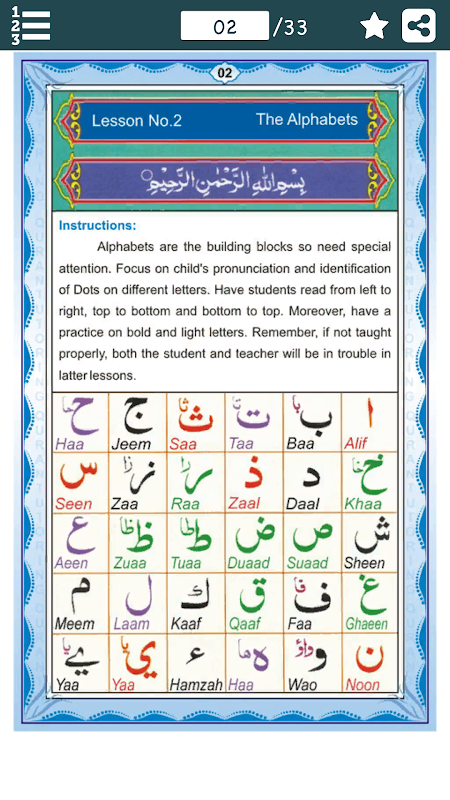 1
2
3
02 /33
02
Lesson No.2 The Alphabets
بِسْمِ اللهِ الرَّحْمٰنِ الرَّحِيْمِ
Instructions:
Alphabets are the building blocks so need special
attention. Focus on child's pronunciation and identification
of Dots on different letters. Have students read from left to
right, top to bottom and bottom to top. Moreover, have a
practice on bold and light letters. Remember, if not taught
properly, both the student and teacher will be in trouble in
latter lessons.
ا ب با ت تا ث ثا ج ح حا
Haa Jeem Saa Taa Baa Alif
خ خا د ذ ر را ز زا س
Seen Zaa Raa Zaal Daal Khaa
ش ص ض ط طا ظ ظا ع
Aeen Zuaa Tuaa Duaad Suaad Sheen
غ ف فا ق ك ل م
Meem Laam Kaaf Qaaf Faa Ghaeen
ن و واؤ ه ها ء ي یا ے یا
Yaa Yaa Hamzah Haa Wao Noon